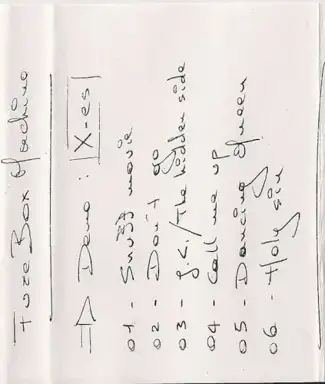 FuzeBox Machine
=> Demo : |X-es|
01 - Snuff movie
02 - Don't go
03 - J.C./The hidden side
04 - Call me up
05 - Dancing Queen
06 - Holy sin